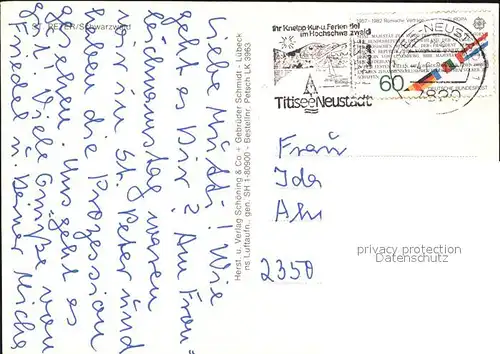 ST. PETER/Schwarzwald
Liebe Mutti! Wie
geht es Dir? Am Fron-
leichnamstag waren
wir in St. Peter und
haben die Prozession
gesehen. Uns geht es
gut. Viele Grüße von
Friedel u. Deiner Micha
Herst. u. Verlag Schöning & Co + Gebrüder Schmidt - Lübeck
ns Luftaufn., gen. SH 1-80900 - Bestellnr. Petsch LK 3963
Ihr Kneipp Kur u Ferienziel
im Hochschwarzwald
Titisee Neustadt
1957-1982 Römische Verträge
EUROPA
60
DEUTSCHE BUNDESPOST
NEUSTADT
7820
Frau
Ida
Ahr
2350
privacy protection
Datenschutz